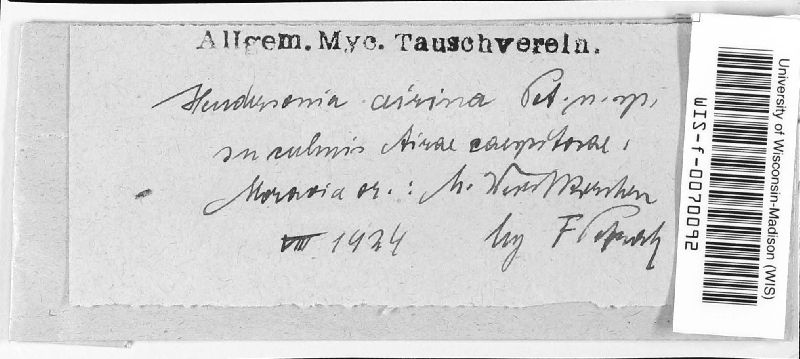 Allgem. Myc. Tauschverein.
Hendersonia airina Pet. n. sp.
in culmis Airae caespitosae.
Moravia or.: M. Weisskirchen
VIII 1924 leg F Petrak
University of Wisconsin-Madison (WIS)
WIS-f-0070092